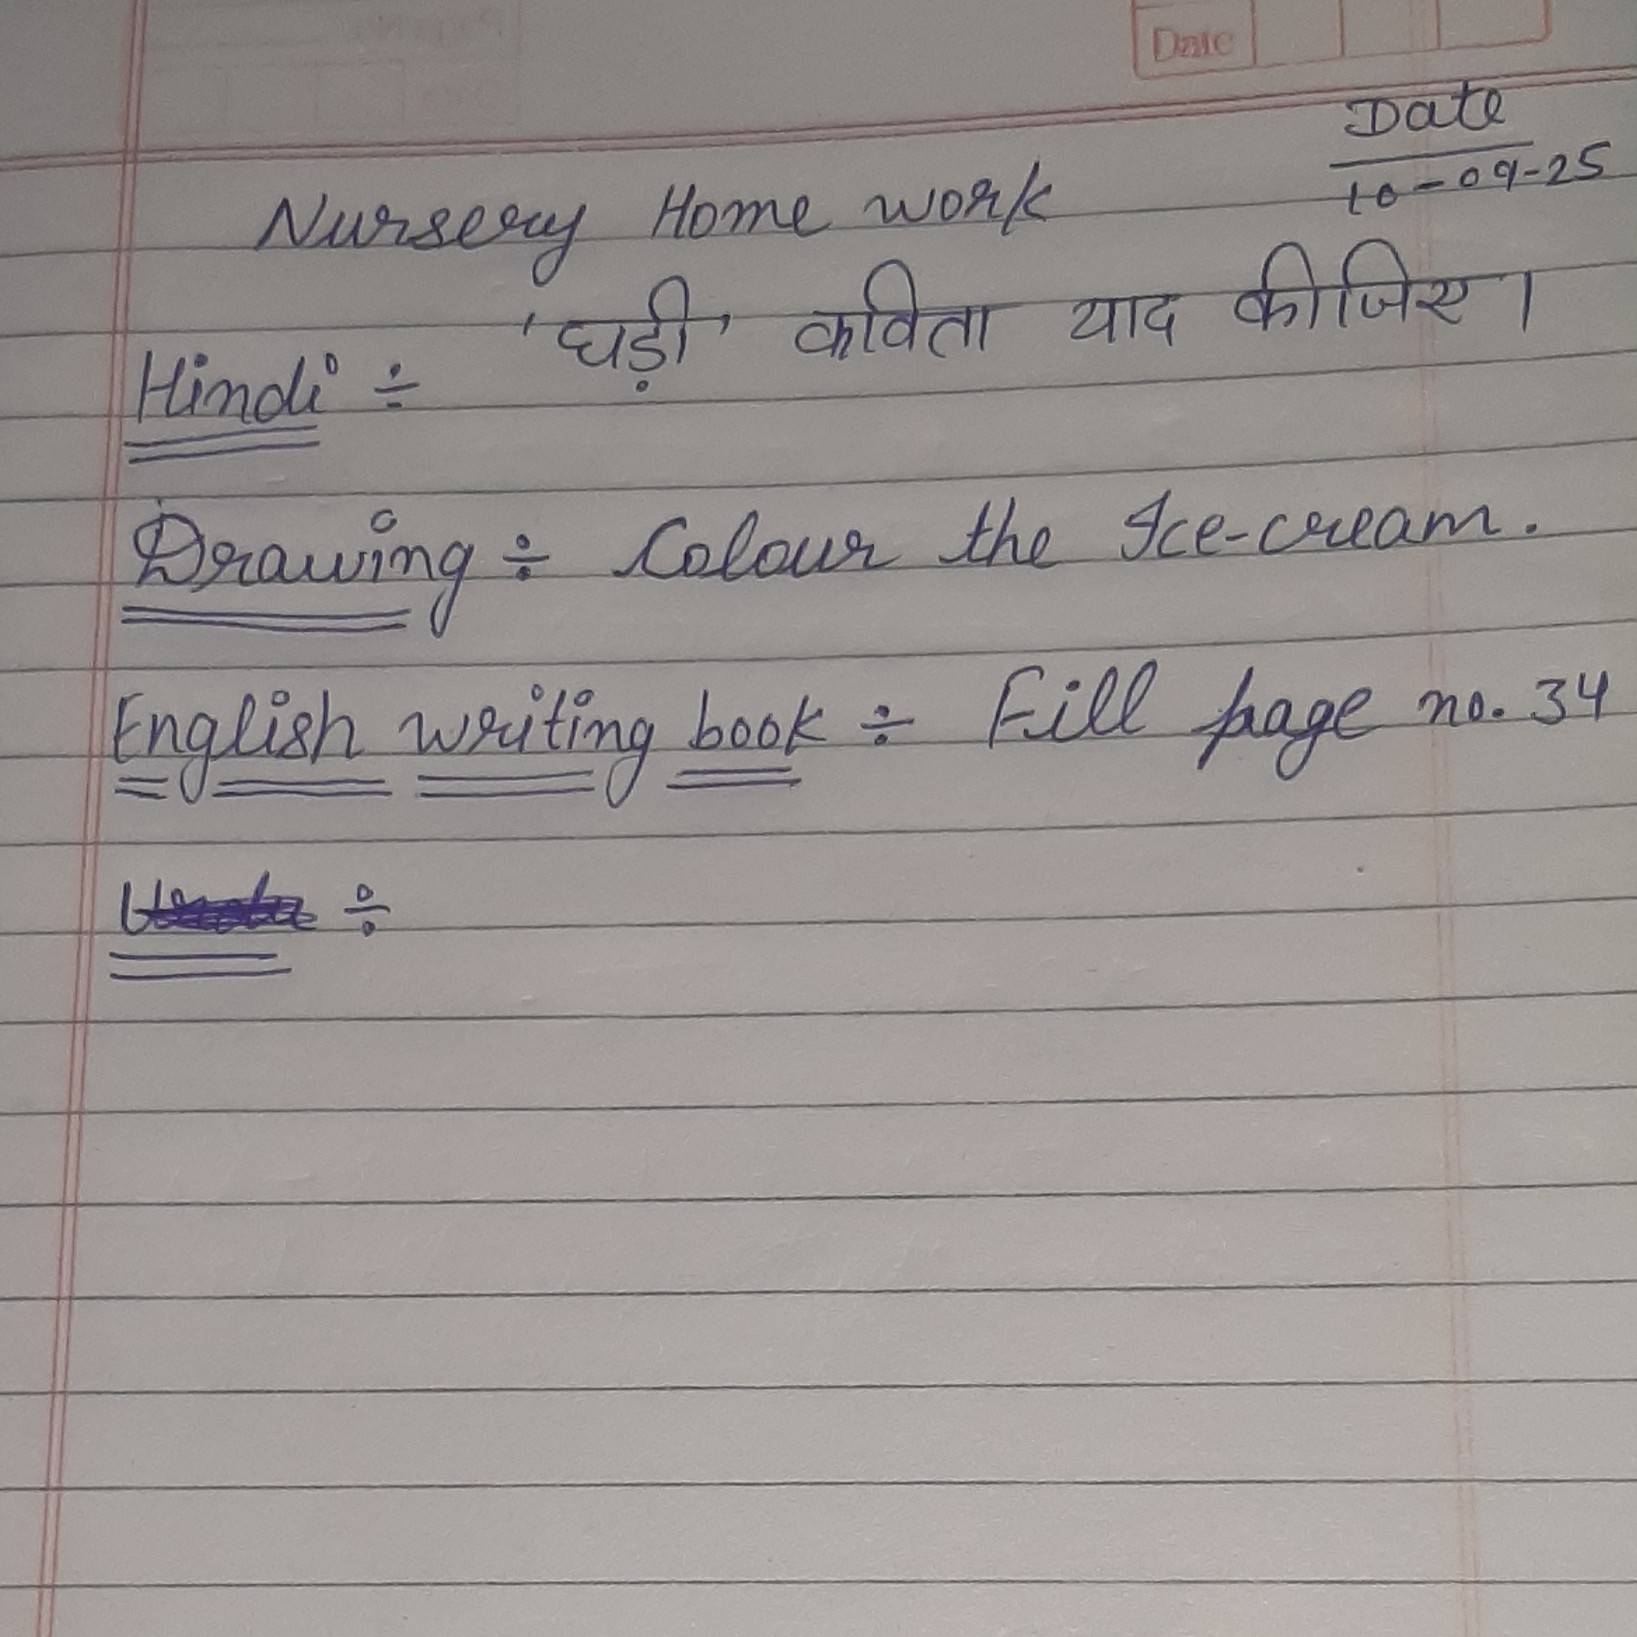 Date
Date
10-09-25
Nursery Home work
Hindi ÷ 'घड़ी' कविता याद कीजिए।
Drawing ÷ Colour the Ice-cream.
English writing book ÷ Fill page no. 34
÷